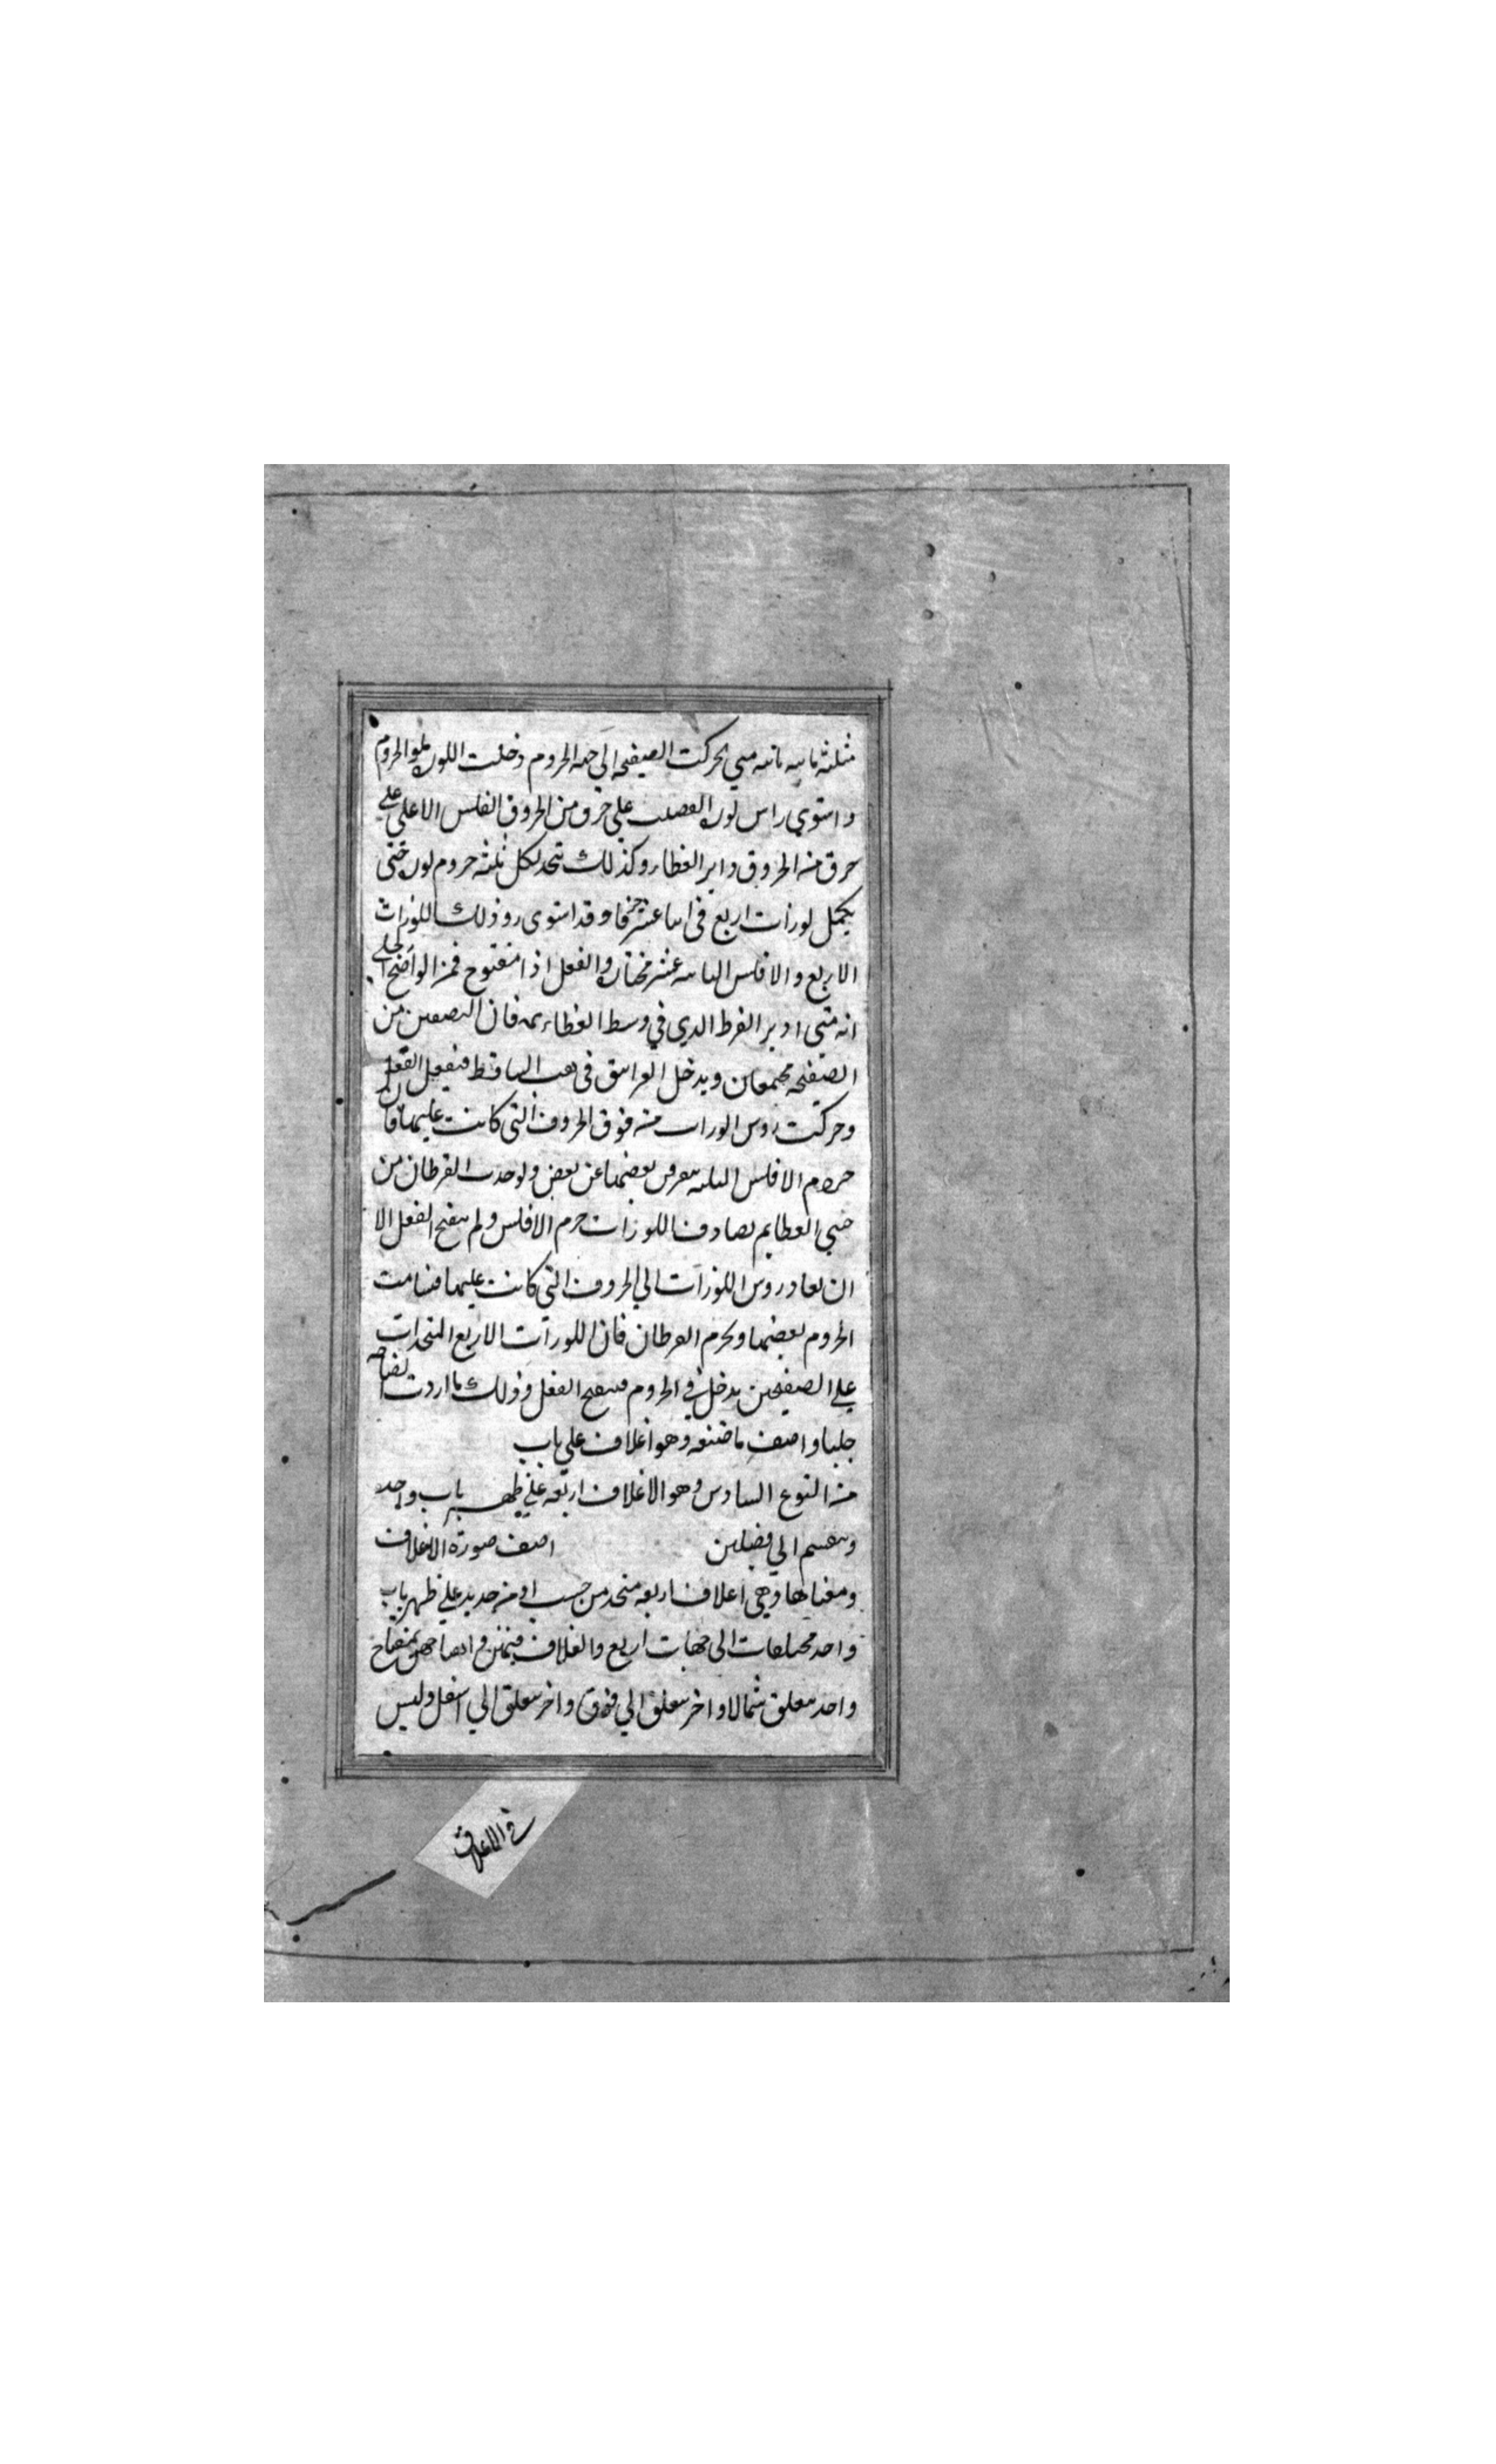 مثلثه ثابته متي تحركت الصفيحه الي جهه الحروم دخلت اللوزه الحروم
واستوي راس لوزه علي حرف من الحروف الفلس الاعلي علي
حرف من الحروف داير الغطاء وكذلك تتخذ لكل ثلثه حروم لوزه حتي
يكمل لوزات اربع في اثنا عشر حرفا وقد استوي ذلك اللوزات
الاربع والافلس عشر والقفل اذا مفتوح فمن الواضح الجلي
انه متي ادير الفرط الذي في وسط الغطاء فان النصفين من
الصفيحه مجتمعان ويدخل في الساقط فيقفل القفل
وحركت روس اللوزات من فوق الحروف التي كانت عليها فان
حروم الافلس الثلثه بعضها عن بعض ولو جذب الفرطان من
جنبي الغطا لم تصادف اللوزات حرم الافلس ولم ينفتح القفل الا
ان تعاد روس اللوزات الي الحروف التي كانت عليها فتسامت
الحروم بعضها الفرطان فان اللوزات الاربع المتخذات
علي الصفيحتين يدخل في الحروم فينفتح القفل وذلك ما اردت ايضاحه
جليا واصف ما صنعه وهو اغلاق علي باب
من النوع السادس وهو الاغلاق اربعه علي ظهر باب واحد
وينقسم الي فصلين اصف صورة الاغلاق
ومعناها وهي اغلاق اربعه متخذ من خشب او من حديد علي ظهر باب
واحد مختلفات الي جهات اربع والغلاق بمفتاح
واحد يغلق شمالا واخر يغلق الي فوق واخر يغلق الي اسفل وليس
في الاغلاق